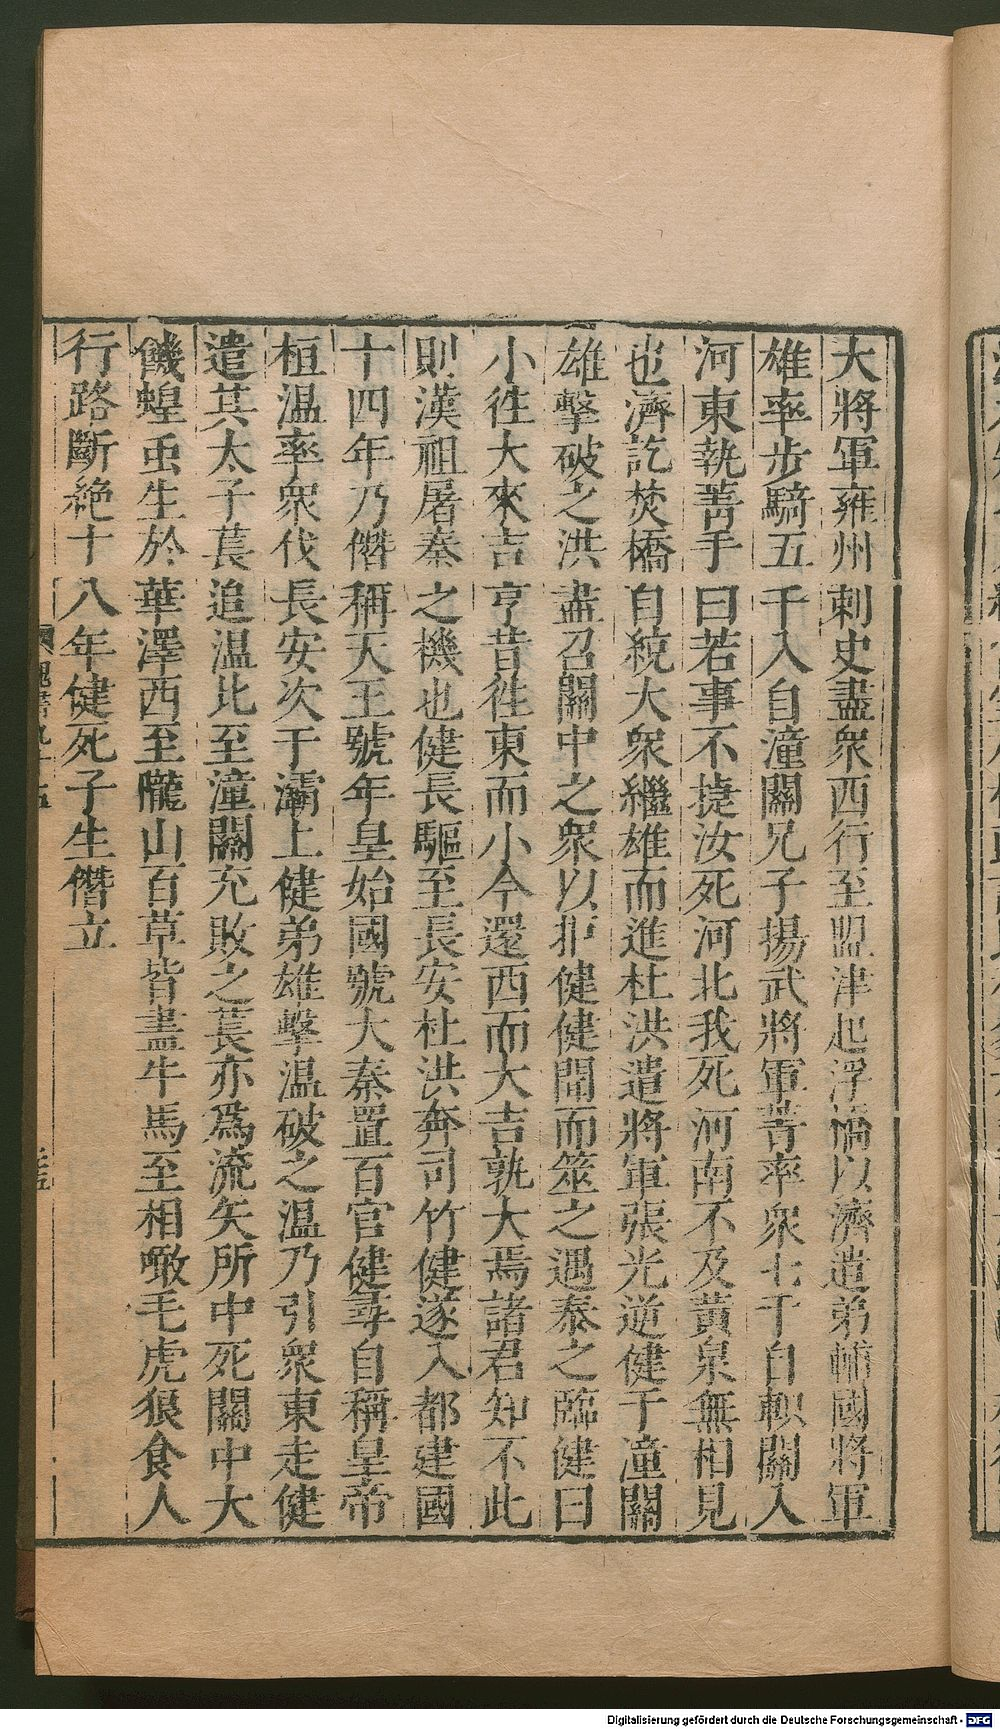 大將軍雍州刺史盡衆西行至盟津起浮橋以濟遣弟輔國將軍
雄率步騎五千入自潼關兄子揚武將軍菁率衆七千自軹關入
河東執菁手曰若事不捷汝死河北我死河南不及黃泉無相見
也濟訖焚橋自統大衆繼雄而進杜洪遣將軍張光逆健于潼關
雄擊破之洪盡召關中之衆以拒健健聞而筮之遇泰之臨健曰
小徃大來吉亨昔徃東而小今還西而大吉孰大焉諸君知不此
則漢祖屠秦之機也健長驅至長安杜洪奔司竹健遂入都建國
十四年乃僭稱天王號年皇始國號大秦置百官健尋自稱皇帝
桓温率衆伐長安次于灞上健弟雄擊温破之温乃引衆東走健
遣其太子萇追温比至潼關充敗之萇亦爲流矢所中死關中大
饑蝗䖝生於華澤西至隴山百草皆盡牛馬至相噉毛虎狼食人
行路斷絶十八年健死子生僭立
魏書九十五
Digitalisierung gefördert durch die Deutsche Forschungsgemeinschaft - DFG